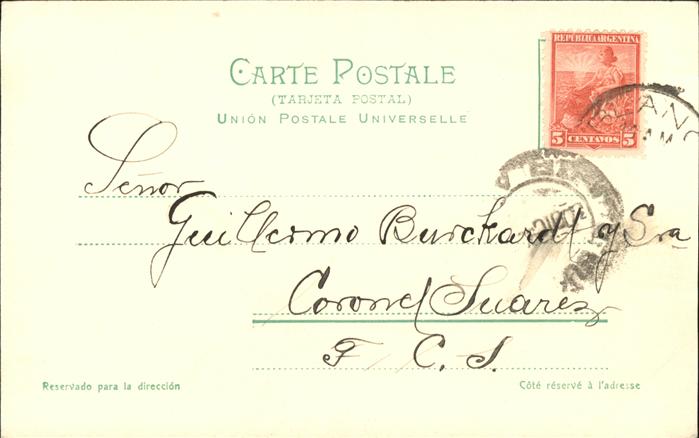 REPÚBLICA ARGENTINA
5 CENTAVOS 5
CARTE POSTALE
(TARJETA POSTAL)
UNIÓN POSTALE UNIVERSELLE
Señor
Guillermo Burckardt y Sra
Coronel Suarez
F. C. S.
Reservado para la dirección
Côté réservé à l'adresse